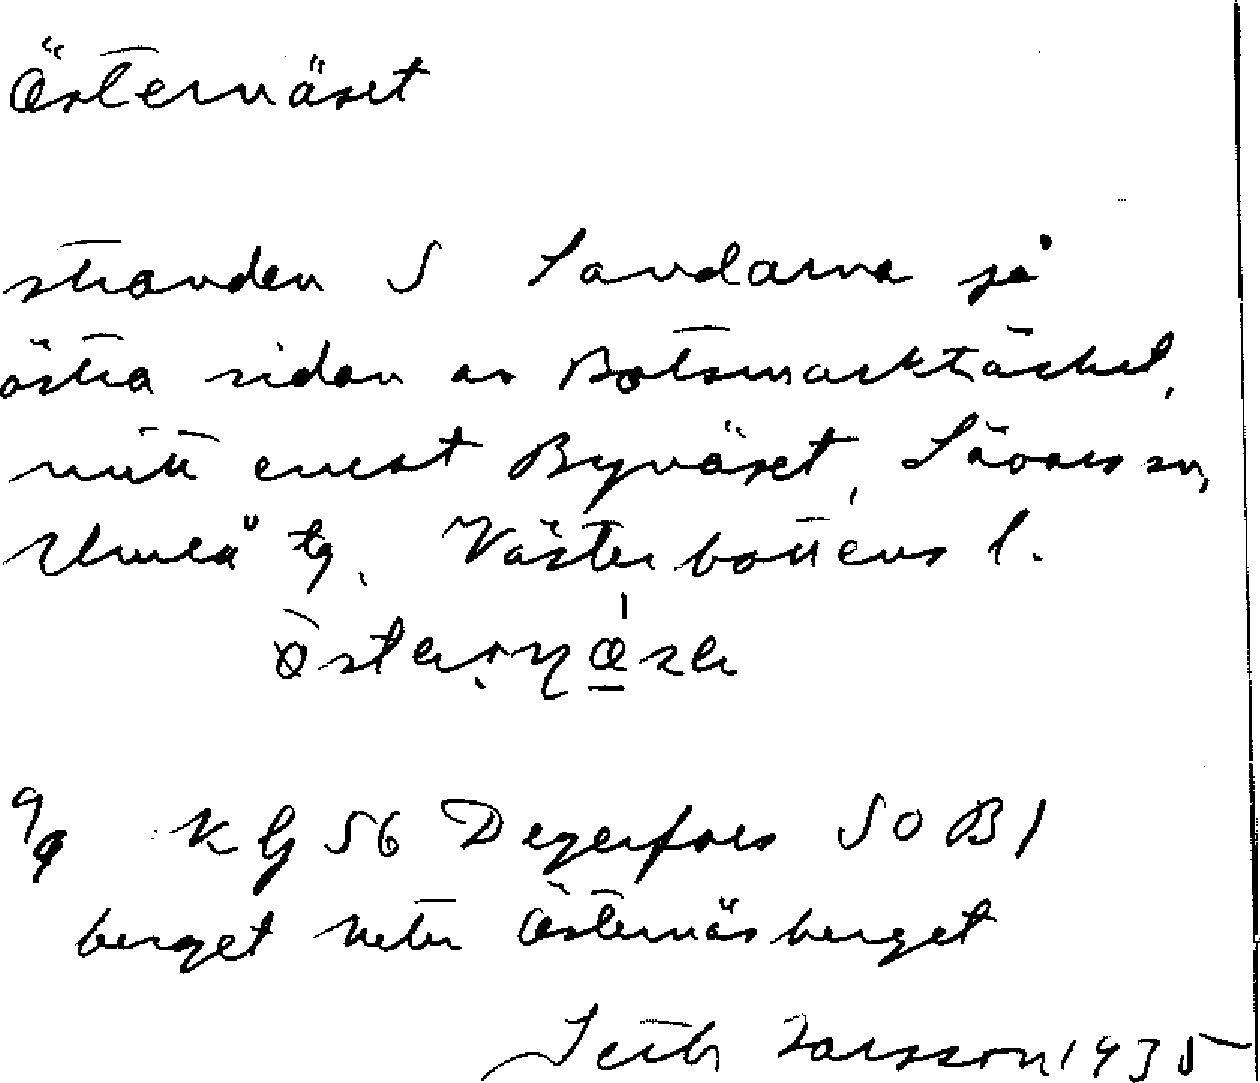 Östernäset
stranden S Sandarna på
östra sidan av Botsmarkträsket,
mitt emot Bynäset, Sävars sn,
Umeå tg. Västerbottens l.
KG 56 Degerfors SO B1
berget heter Östernäsberget
Seth Larsson 1935